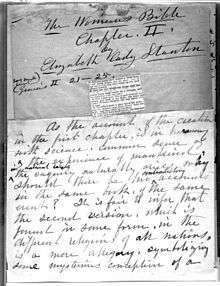 The Woman's Bible
Chapter II.
by
Elizabeth Cady Stanton
Genesis II 21–25.
As the account of the creation
in the first chapter, is in harmony
with science, common sense, &
the experience of mankind
the enquiry naturally arises, why
should there be contradictory accounts
in the same book, of the same
event? It is fair to infer that
the second version, which is
found in some form, in the
different religions of all nations,
is a mere allegory, symbolizing
some mysterious conception of a